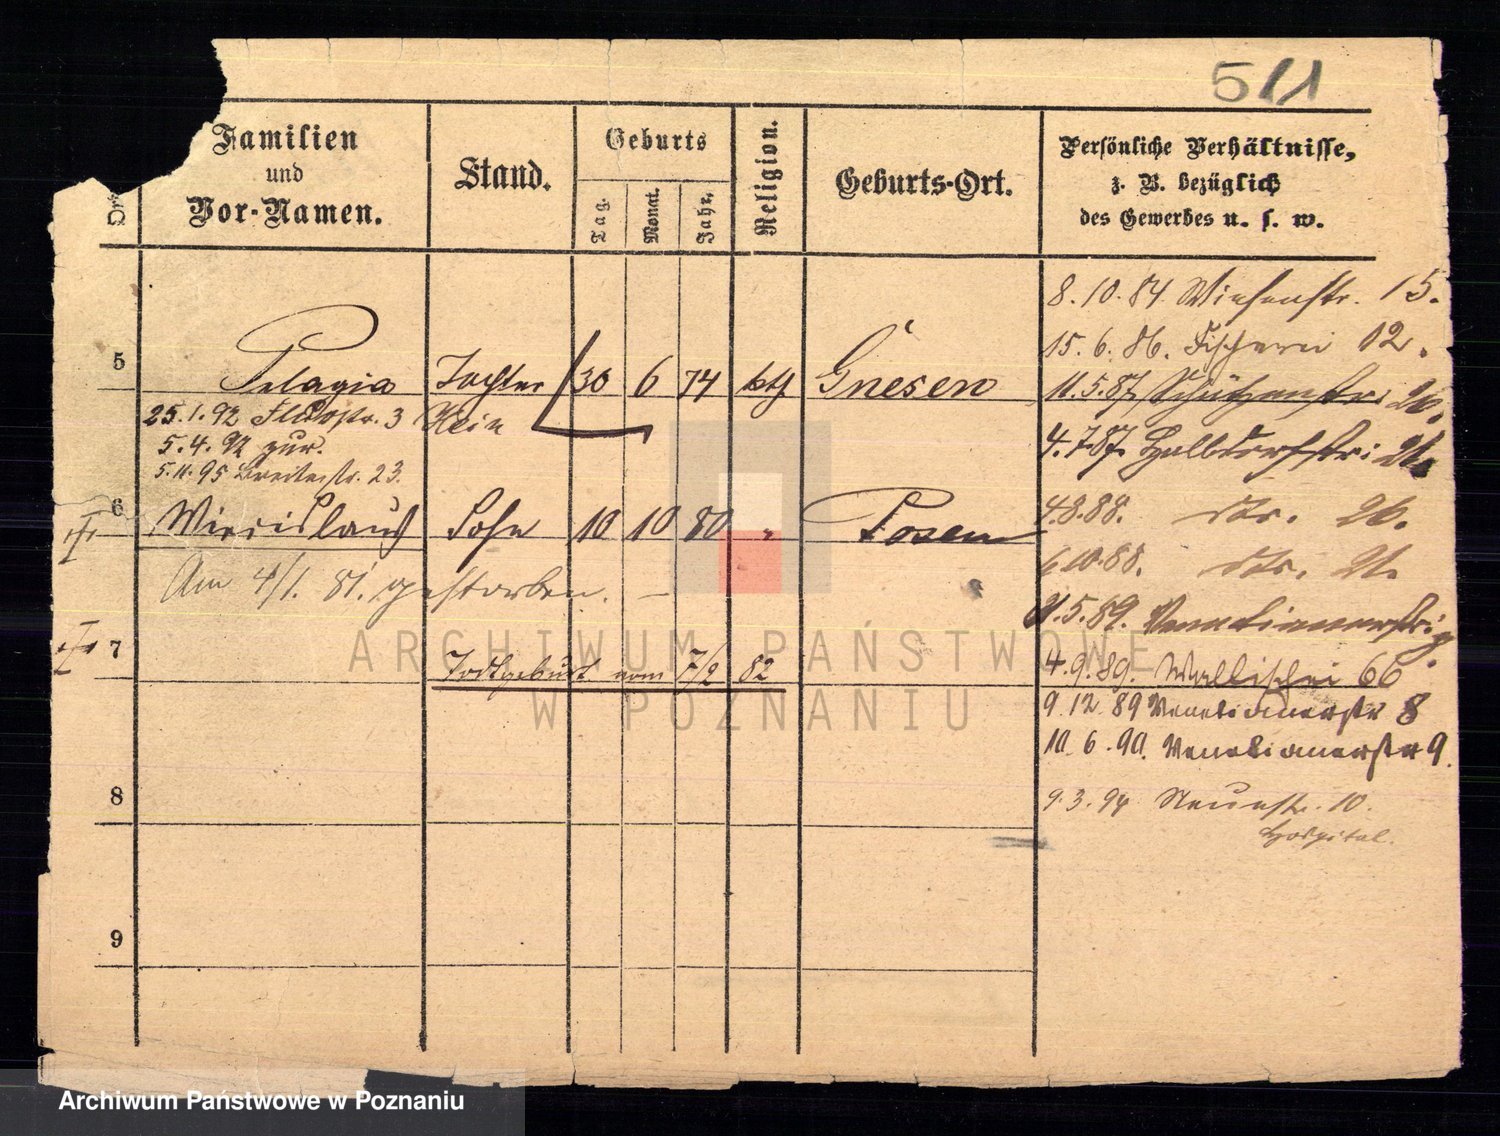 511
Familien
und
Vor-Namen.
Stand.
Geburts
Tag.
Monat.
Jahr.
Religion.
Geburts-Ort.
Persönliche Verhältnisse,
z. B. bezüglich
des Gewerbes u. s. w.
8.10.84 Wiesenstr. 15.
15.6.86. Fischerei 12.
5 Pelagia Tochter 30 6 74 kth Gnesen
11.5.87 Schützenstr. 20.
25.1.92 3
4.7.87. Halbdorfstr: 21.
5.4.92 zur.
5.11.95 Breitestr. 23.
6 Sohn 10 10 80 " Posen
4.8.88. do. 26.
6.10.88. do. 21.
Am 4/1. 81. gestorben. —
11.5.89. Venetianerstr. 9.
7 Todtgeburt vom 7/2 82
4.9.89. Wallischei 66
9.12.89 Venetianerstr 8
10.6.90. Venetianerstr 9.
8
9.3.94 Neuestr. 10.
Hospital.
9
ARCHIWUM PAŃSTWOWE
W POZNANIU
Archiwum Państwowe w Poznaniu